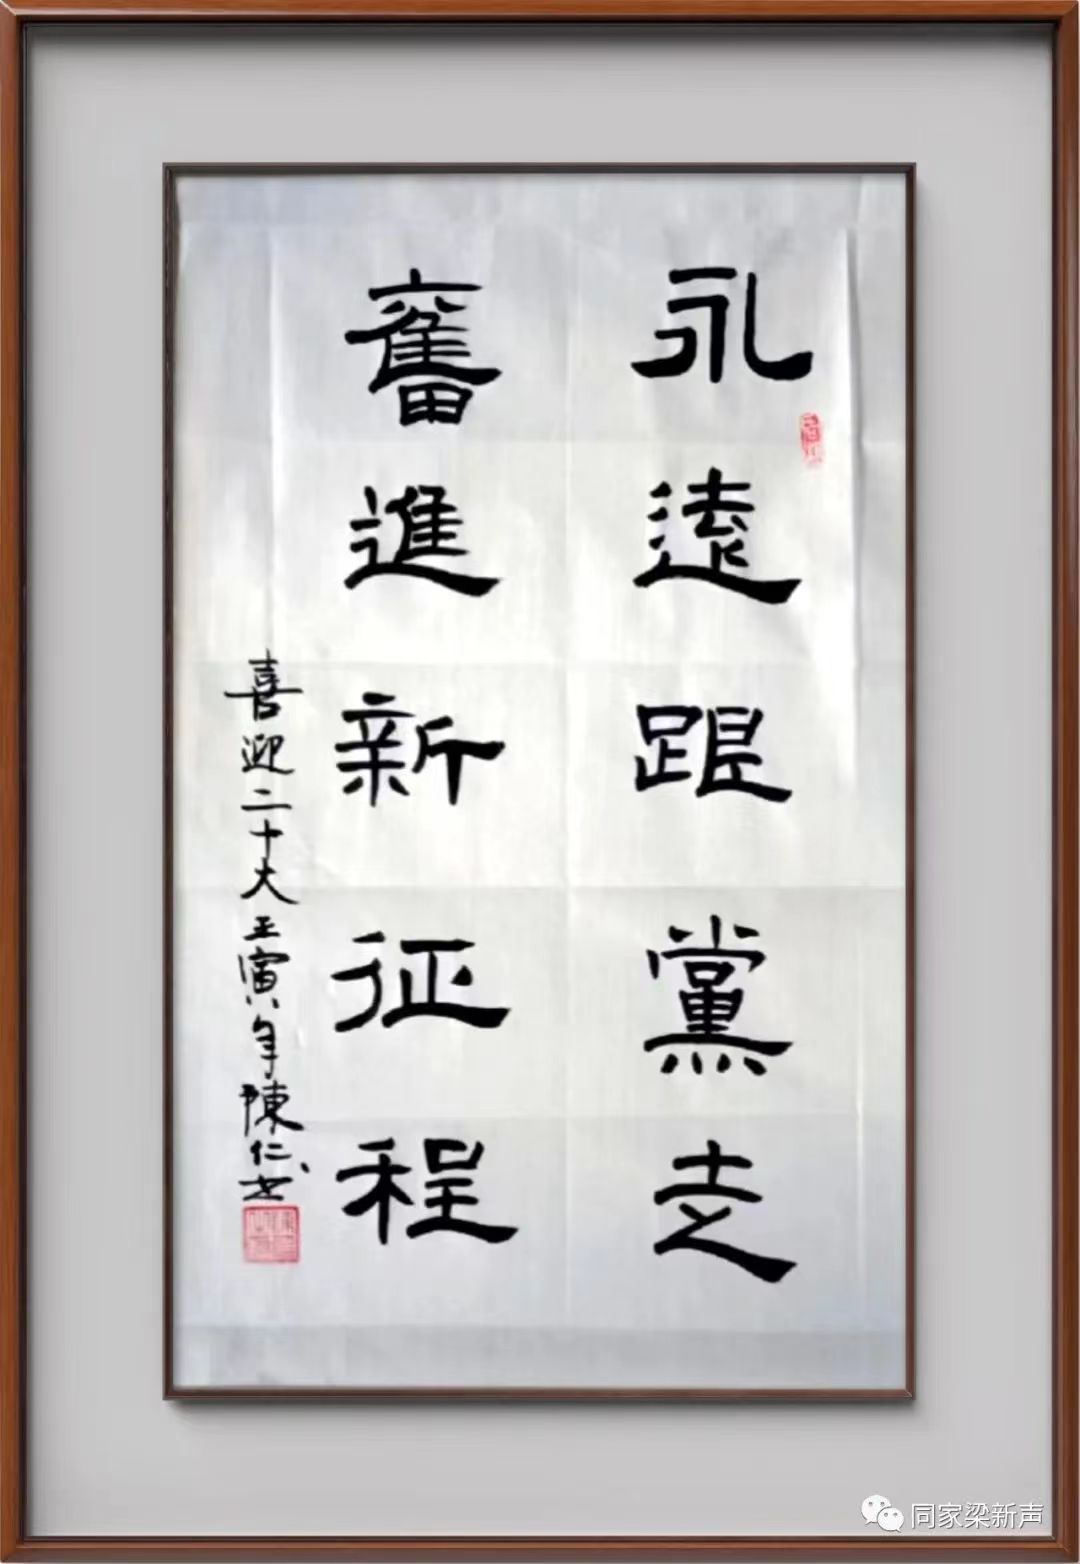 永遠跟黨走
奮進新征程
喜迎二十大壬寅年陳仁书
同家梁新声